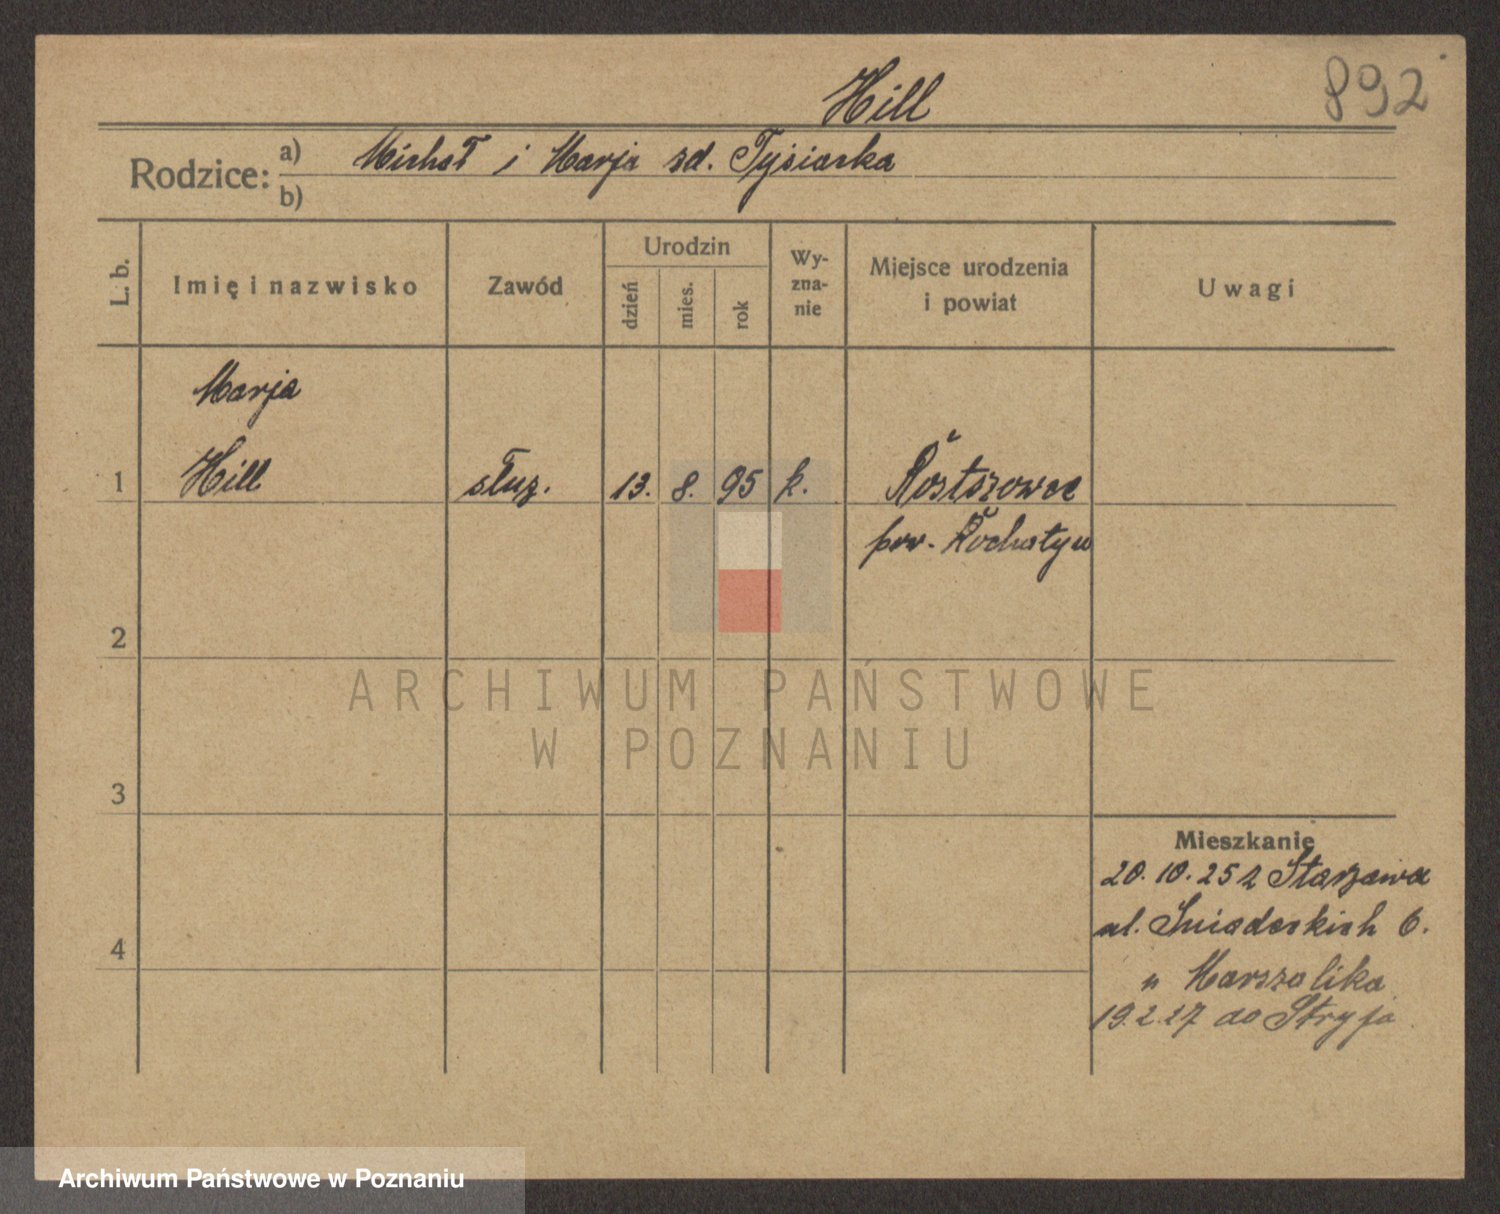 Hill
892
Rodzice:
a) Michał i Marja zd. Tysiacka
b)
L. b.
Imię i nazwisko
Zawód
Urodzin
dzień
mies.
rok
Wy-
zna-
nie
Miejsce urodzenia
i powiat
Uwagi
Marja
1 Hill służ. 13. 8. 95 k.
pow. Rohatyn
2
ARCHIWUM PAŃSTWOWE
W POZNANIU
3
4
Mieszkanie
20.10.25 z Starzawa
ul. Śniadeckich 6.
u Marszalika
19.2.27 do Stryja
Archiwum Państwowe w Poznaniu